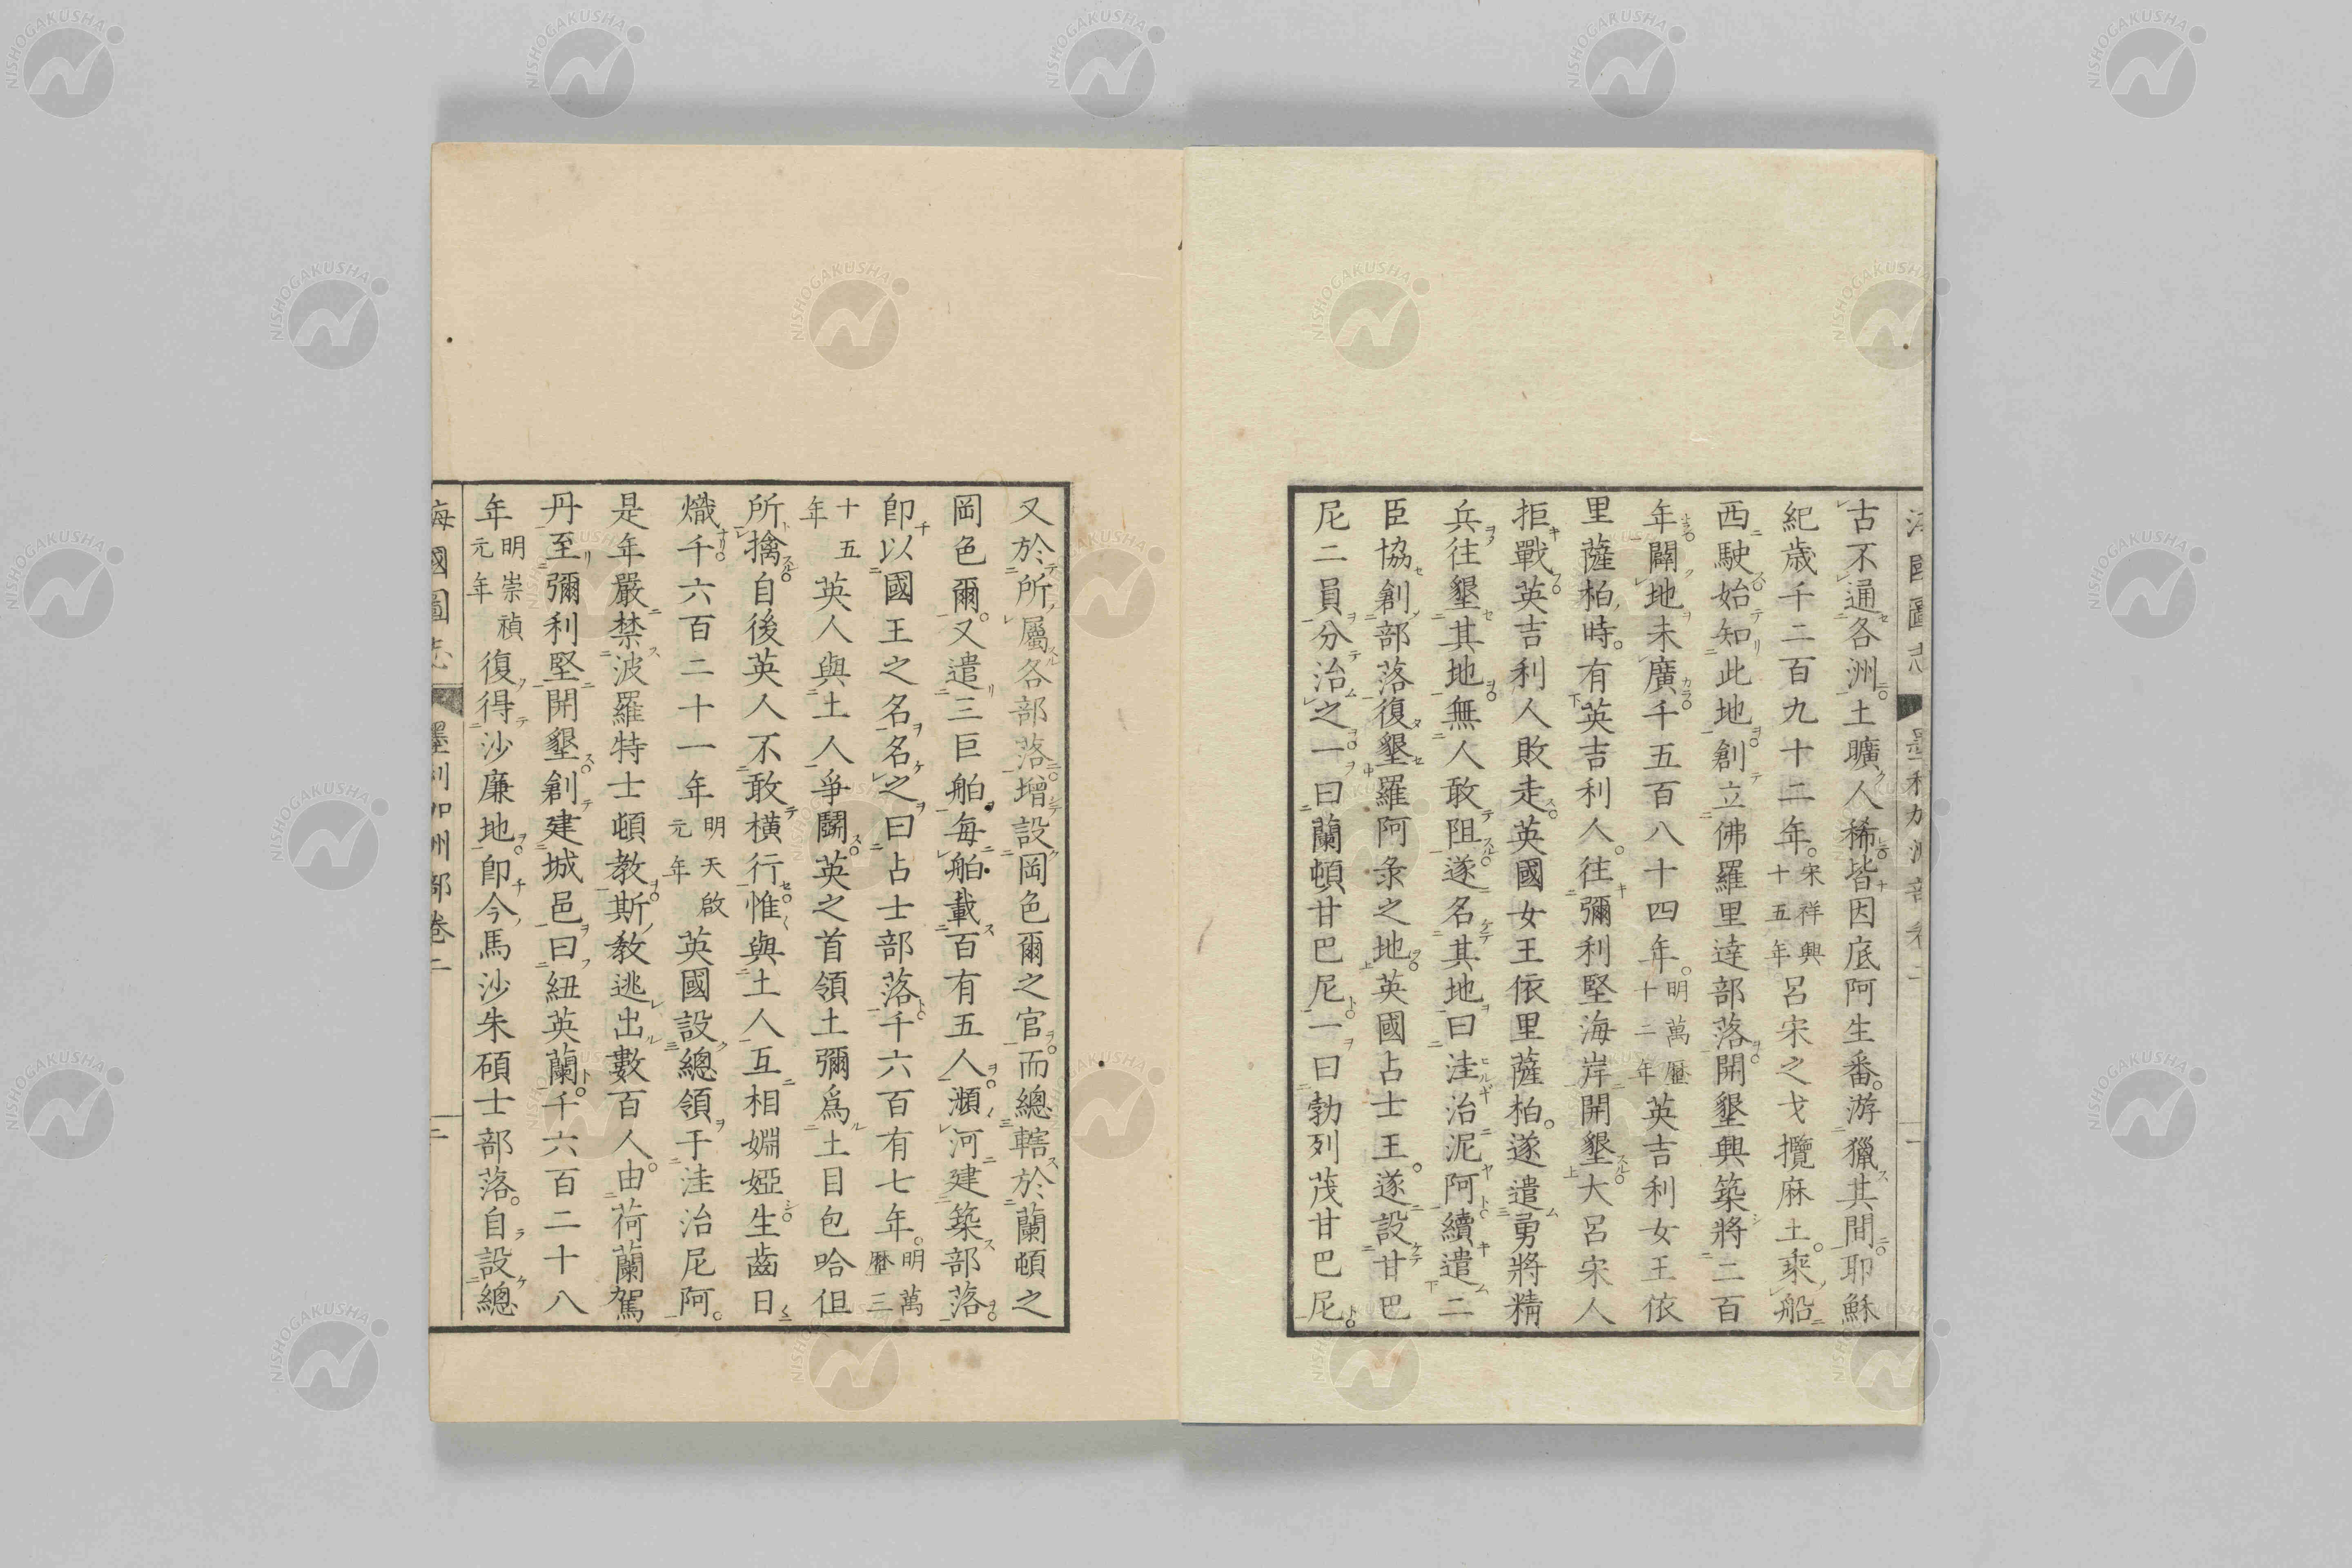 古不通各洲土曠人稀皆因底阿生番游獵其間耶穌
紀歲千二百九十二年。宋祥興十五年呂宋之戈攬麻土乘船
西駛始知此地創立佛羅里達部落開墾興築將二百
年闢地未廣千五百八十四年。明萬曆十二年英吉利女王依
里薩柏時。有英吉利人。往彌利堅海岸開墾大呂宋人
拒戰英吉利人敗走英國女王依里薩柏。遂遣勇將精
兵往墾其地無人敢阻遂名其地曰洼治泥阿續遣二
臣協創部落復墾羅阿录之地英國占士王。遂設甘巴
尼二員分治之一曰蘭頓甘巴尼一曰勃列茂甘巴尼
又於所屬各部落增設岡色爾之官而總轄於蘭頓之
岡色爾。又遣三巨舶每舶載百有五人瀕河建築部落
卽以國王之名名之曰占士部落千六百有七年。明萬曆三
十五年英人與土人爭鬭英之首領土彌爲土目包哈但
所擒自後英人不敢橫行惟與土人互相婣婭生齒日
熾千六百二十一年明天啟元年英國設總領于洼治尼阿。
是年嚴禁波羅特士頓教斯教逃出數百人。由荷蘭駕
丹至彌利堅開墾創建城邑曰紐英蘭。千六百二十八
年明崇禎元年復得沙廉地卽今馬沙朱碩士部落。自設總
海國圖志 墨利加洲部卷二 二